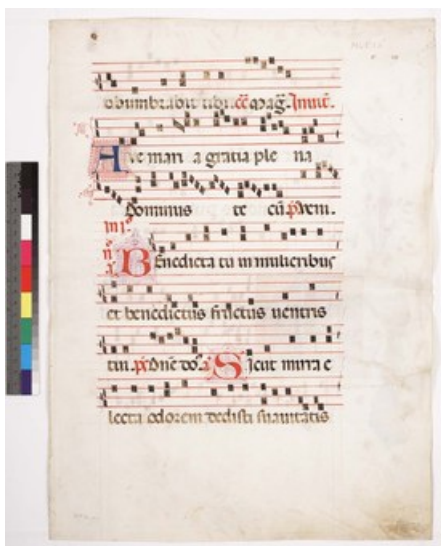 obumbrabit tibi. Mag. Invit.
Ave mari a gratia ple na
Dominus te cū. p̄ Veni.
Benedicta tu in mulieribus
et benedictus fructus ventris
tui. Sicut mirra e
lecta odorem dedisti suavitatis